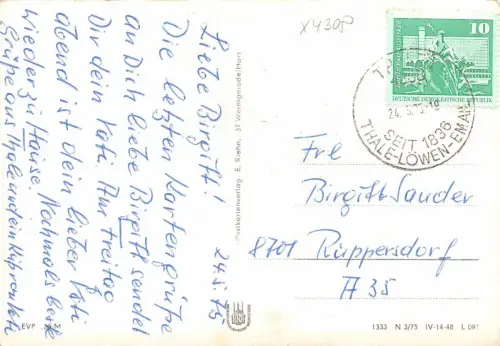 24.5.75
Liebe Birgitt!
Die letzten Kartengrüße
an Dich liebe Birgitt sendet
Dir dein Vati. Am Freitag
abend ist dein lieber Vati
wieder zu Hause. Nochmals beste
Grüße aus Thale und ein
X4305
Postkartenverlag E. Riehn, 37 Wernigerode/Harz
10
DEUTSCHE DEMOKRATISCHE REPUBLIK
THALE
24.5.75-18
SEIT 1836
THALE-LÖWEN-EMAIL
Frl
Birgitt Sauder
8701 Ruppersdorf
A 35
EVP M
1333 N 3/75 IV-14-48 L 097